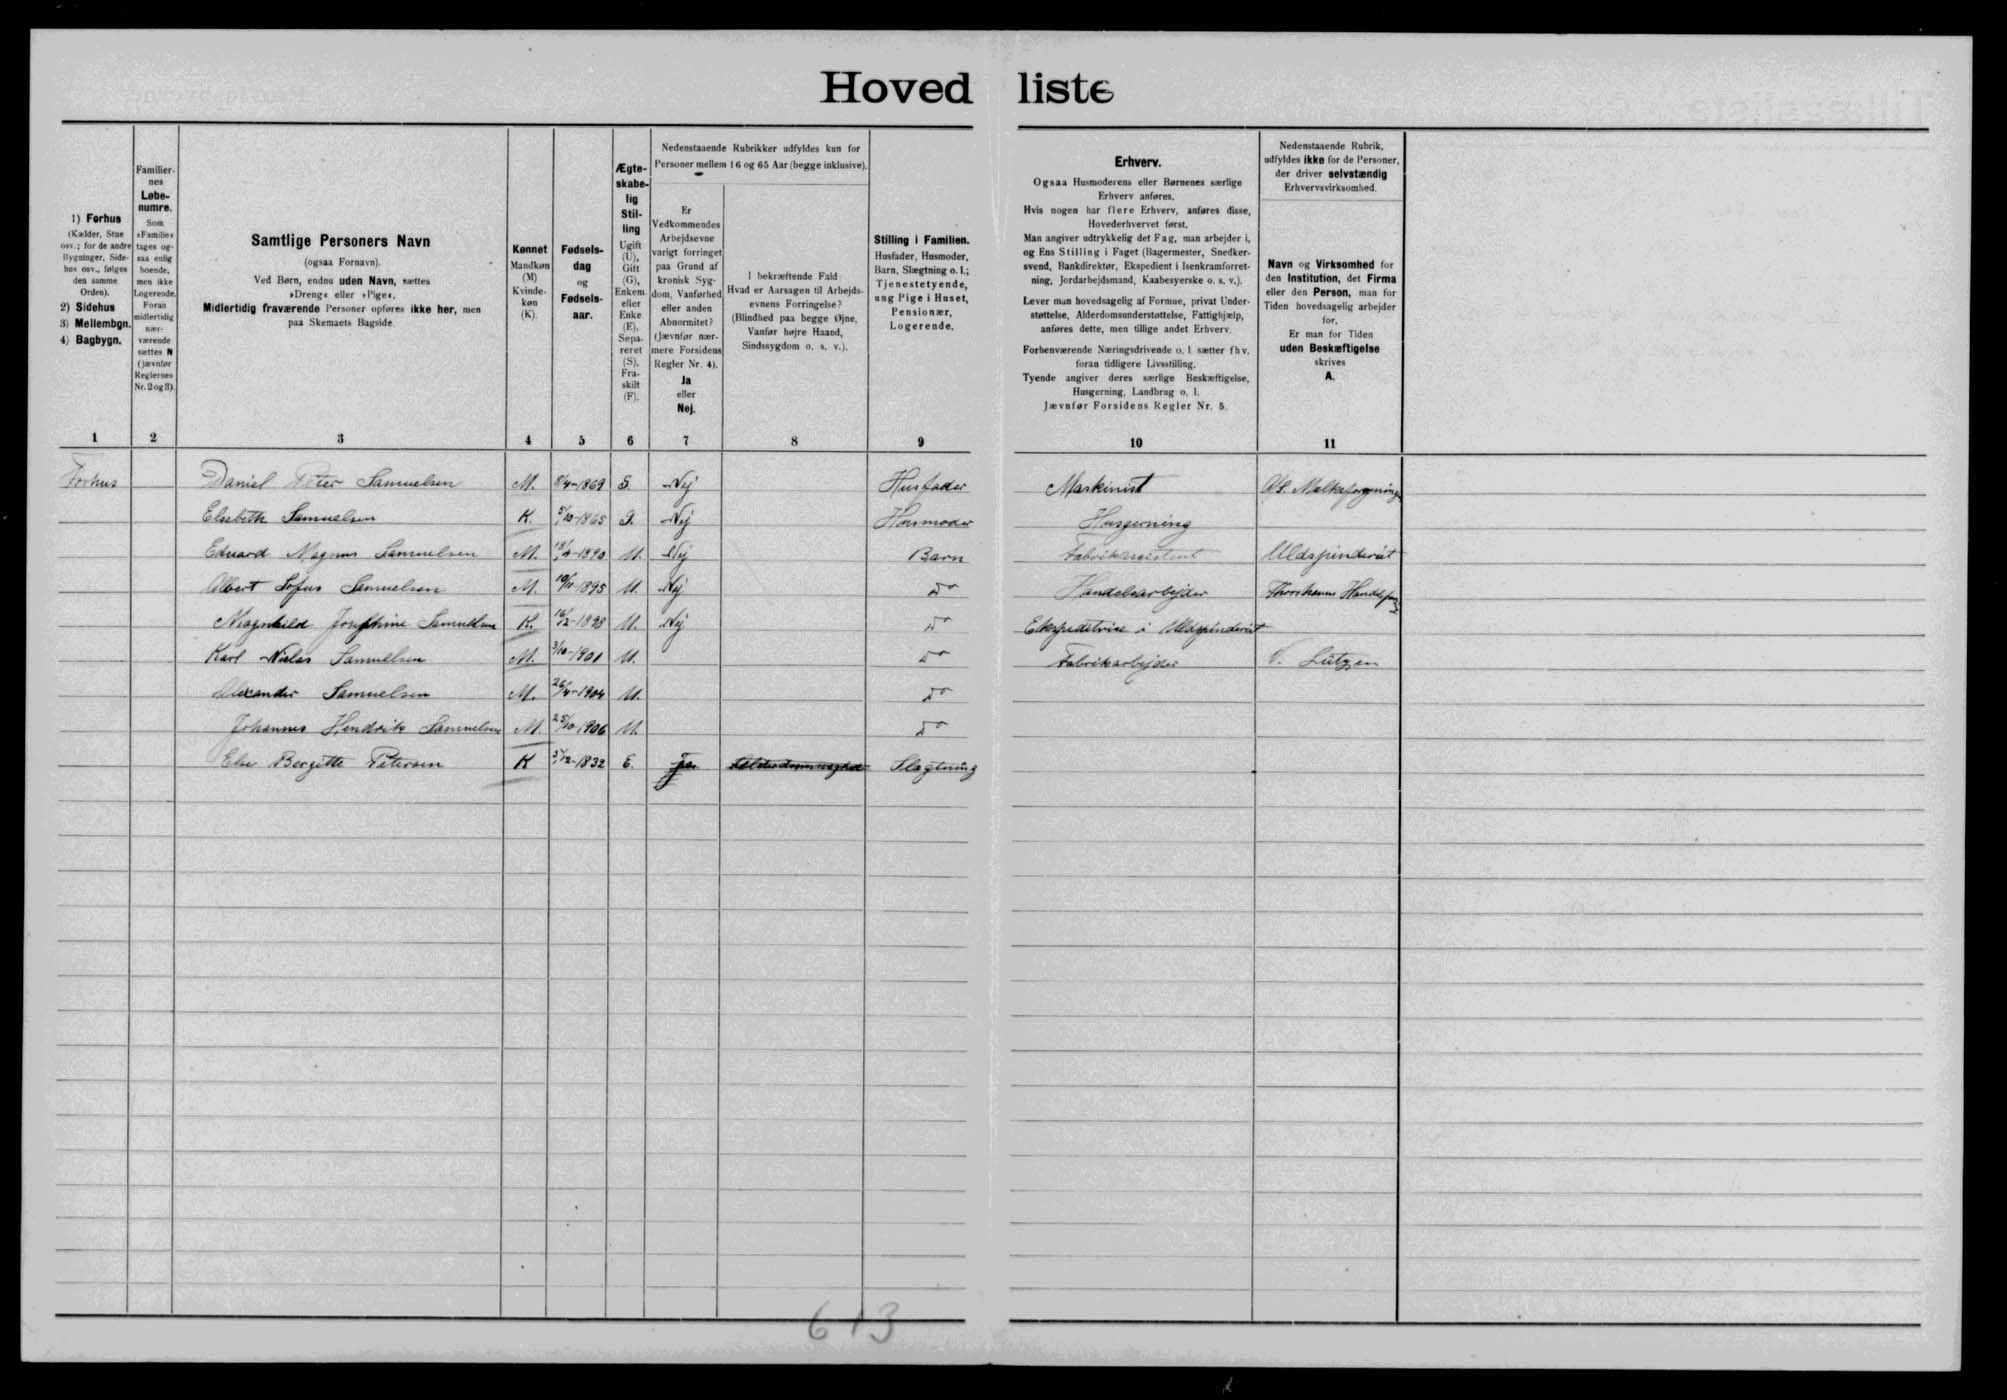 Hovedliste
1) Forhus
(Kælder, Stue
osv.; for de andre
Bygninger, Side-
hus osv., følges
den samme
Orden).
2) Sidehus
3) Mellembgn.
4) Bagbygn.
Familier-
nes
Løbe-
numre.
Som
»Familie«
tages og-
saa enlig
boende,
men ikke
Logerende.
Foran
midlertidig
nær-
værende
sættes N
(jævnfør
Reglernes
Nr. 2 og 3).
Samtlige Personers Navn
(ogsaa Fornavn).
Ved Børn, endnu uden Navn, sættes
»Dreng« eller »Pige«.
Midlertidig fraværende Personer opføres ikke her, men
paa Skemaets Bagside.
Kønnet
Mandkøn
(M)
Kvinde-
køn
(K).
Fødsels-
dag
og
Fødsels-
aar.
Ægte-
skabe-
lig
Stil-
ling
Ugift
(U),
Gift
(G),
Enkem.
eller
Enke
(E),
Sepa-
reret
(S),
Fra-
skilt
(F).
Nedenstaaende Rubrikker udfyldes kun for
Personer mellem 16 og 65 Aar (begge inklusive).
Er
Vedkommendes
Arbejdsevne
varigt forringet
paa Grund af
kronisk Syg-
dom, Vanførhed
eller anden
Abnormitet?
(Jævnfør nær-
mere Forsidens
Regler Nr. 4).
Ja
eller
Nej.
I bekræftende Fald:
Hvad er Aarsagen til Arbejds-
evnens Forringelse?
(Blindhed paa begge Øjne,
Vanfør højre Haand,
Sindssygdom o. s. v.).
Stilling i Familien.
Husfader, Husmoder,
Barn, Slægtning o. l.;
Tjenestetyende,
ung Pige i Huset,
Pensionær,
Logerende.
Erhverv.
Ogsaa Husmoderens eller Børnenes særlige
Erhverv anføres.
Hvis nogen har flere Erhverv, anføres disse,
Hovederhvervet først.
Man angiver udtrykkelig det Fag, man arbejder i,
og Ens Stilling i Faget (Bagermester, Snedker-
svend, Bankdirektør, Ekspedient i Isenkramforret-
ning, Jordarbejdsmand, Kaabesyerske o. s. v.).
Lever man hovedsagelig af Formue, privat Under-
støttelse, Alderdomsunderstøttelse, Fattighjælp,
anføres dette, men tillige andet Erhverv.
Forhenværende Næringsdrivende o. l. sætter fhv.
foran tidligere Livsstilling.
Tyende angiver deres særlige Beskæftigelse,
Husgerning, Landbrug o. l.
Jævnfør Forsidens Regler Nr. 5.
Nedenstaaende Rubrik,
udfyldes ikke for de Personer,
der driver selvstændig
Erhvervsvirksomhed.
Navn og Virksomhed for
den Institution, det Firma
eller den Person, man for
Tiden hovedsagelig arbejder
for.
Er man for Tiden
uden Beskæftigelse
skrives
A.
1 2 3 4 5 6 7 8 9 10 11
Forhus Daniel Peter Samuelsen M. 8/4-1869 G. Nej Husfader Maskinist
Elsebeth Samuelsen K. 5/10-1865 G. Nej Husmoder Husgerning
Eduard Magnus Samuelsen M. 13/4-1890 U. Nej Barn Fabrikassistent Uldspinderiet
Albert Sofus Samuelsen M. 10/11-1895 U. Nej Do Handelsarbejder
Magnhild Josephine Samuelsen K. 16/2-1898 U. Nej Do Ekspeditrice i Uldspinderiet
Karl Niclas Samuelsen M. 3/10-1901 U. Do Fabrikarbejder V. Lützen
Alexander Samuelsen M. 26/4-1904 U. Do
Johannes Hendrik Samuelsen M. 25/10-1906 U. Do
Else Bergitte Petersen K 5/12-1832 E. Ja Slægtning
613